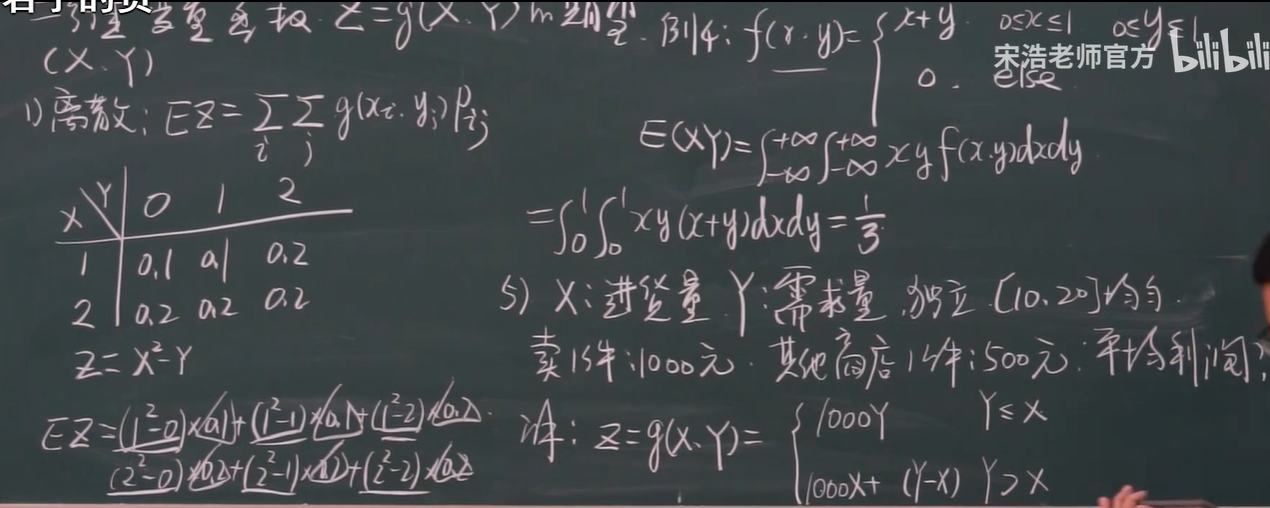 Z=g(X、Y)
(X、Y)
1)离散: EZ=∑∑g(xi、yj)Pij
i j
X Y 0 1 2
1 0.1 0.1 0.2
2 0.2 0.2 0.2
Z=X²-Y
EZ=(1²-0)×0.1+(1²-1)×0.1+(1²-2)×0.2
(2²-0)×0.2+(2²-1)×0.2+(2²-2)×0.2
例4: f(x、y)={x+y 0≤x≤1 0≤y≤1
0. else
宋浩老师官方 bilibili
E(XY)=∫-∞+∞∫-∞+∞xyf(x.y)dxdy
=∫01∫01xy(x+y)dxdy=1/3
5) X:进货量 Y:需求量 独立 [10.20]均匀
卖1件:1000元. 其他商店1件:500元: 平均利润?
解: Z=g(X、Y)={1000Y Y≤X
1000X+ (Y-X) Y>X